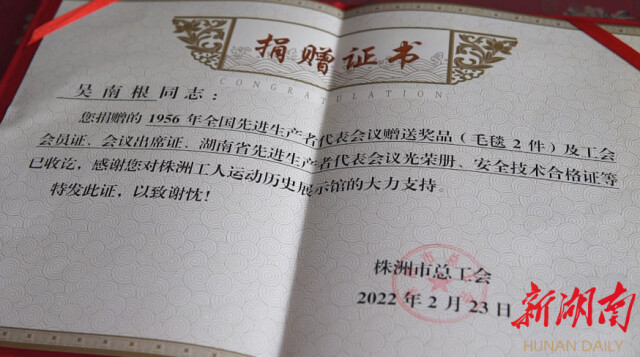 捐赠证书
CONGRATULATION
吴南根同志：
您捐赠的1956年全国先进生产者代表会议赠送奖品（毛毯2件）及工会
会员证、会议出席证、湖南省先进生产者代表会议光荣册、安全技术合格证等
已收讫，感谢您对株洲工人运动历史展示馆的大力支持。
特发此证，以致谢忱！
株洲市总工会
2022年2月23日
新湖南
HUNAN DAILY